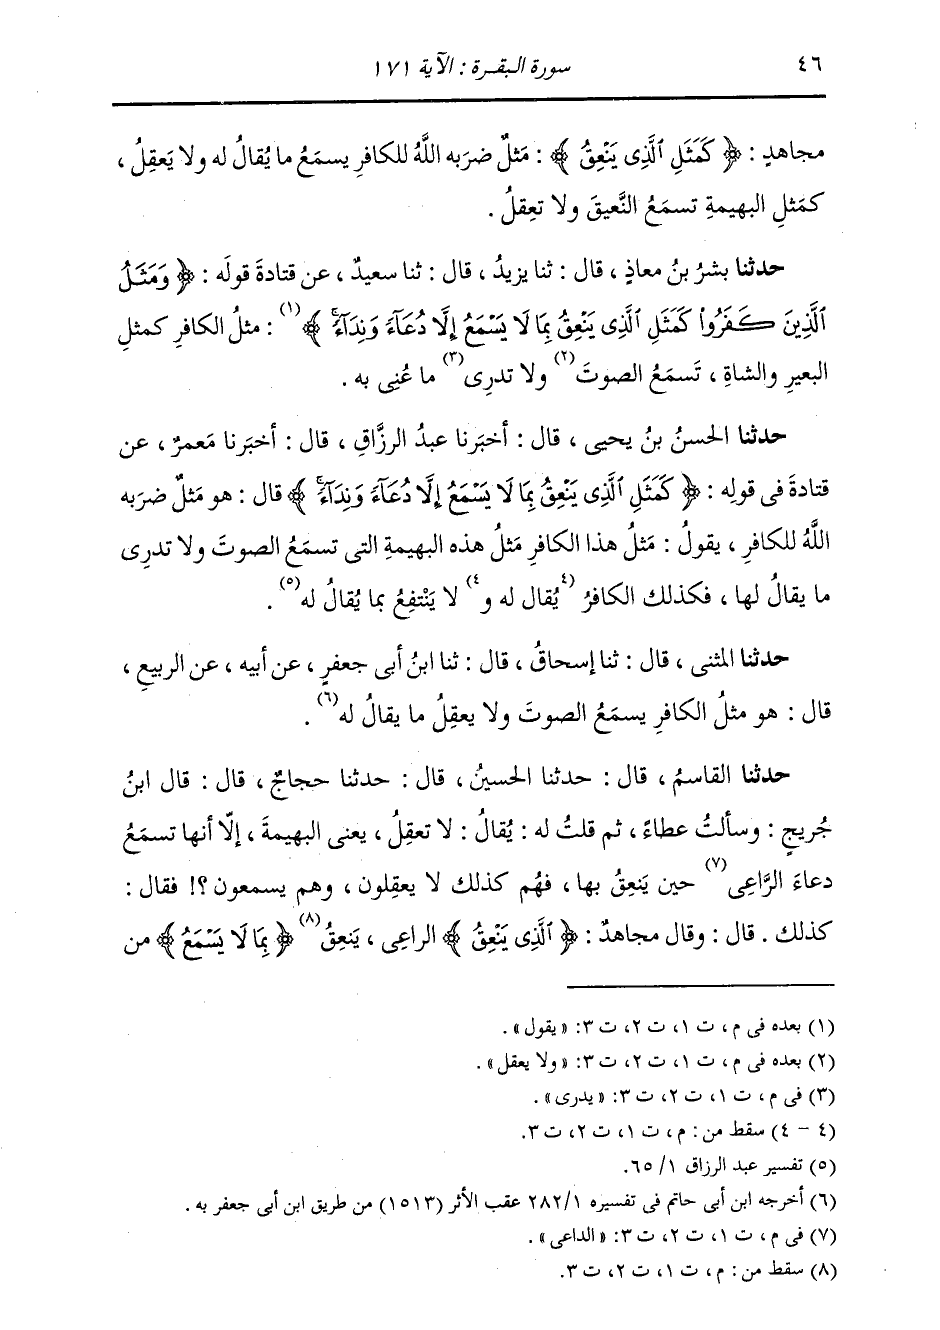 ٤٦
سورة البقرة : الآية ١٧١
مجاهدٍ : ﴿ كَمَثَلِ ٱلَّذِى يَنْعِقُ ﴾ : مَثلٌ ضرَبه اللَّهُ للكافرِ يسمَعُ ما يُقالُ له ولا يَعقِلُ ،
كمَثلِ البهيمةِ تسمَعُ النَّعيقَ ولا تعقِلُ .
حدثنا بشرُ بنُ معاذٍ ، قال : ثنا يزيدُ ، قال : ثنا سعيدٌ ، عن قتادةَ قولَه : ﴿ وَمَثَلُ
ٱلَّذِينَ كَفَرُواْ كَمَثَلِ ٱلَّذِى يَنْعِقُ بِمَا لَا يَسْمَعُ إِلَّا دُعَآءً وَنِدَآءً ﴾(١) : مثلُ الكافرِ كمثلِ
البعيرِ والشاةِ ، تَسمَعُ الصوتَ(٢) ولا تدرِى(٣) ما عُنِى به .
حدثنا الحسنُ بنُ يحيى ، قال : أخبَرنا عبدُ الرزَّاقِ ، قال : أخبَرنا مَعمرٌ ، عن
قتادةَ فى قولِه : ﴿ كَمَثَلِ ٱلَّذِى يَنْعِقُ بِمَا لَا يَسْمَعُ إِلَّا دُعَآءً وَنِدَآءً ﴾ قال : هو مَثلٌ ضرَبه
اللَّهُ للكافرِ ، يقولُ : مَثلُ هذا الكافرِ مَثلُ هذه البهيمةِ التى تسمَعُ الصوتَ ولا تدرِى
ما يقالُ لها ، فكذلك الكافرُ (٤يُقال له و٤) لا يَنْتفِعُ بما يُقالُ له(٥) .
حدثنا المثنى ، قال : ثنا إسحاقُ ، قال : ثنا ابنُ أبى جعفرٍ ، عن أبيه ، عن الربيعِ ،
قال : هو مثلُ الكافرِ يسمَعُ الصوتَ ولا يعقِلُ ما يقالُ له(٦) .
حدثنا القاسمُ ، قال : حدثنا الحسينُ ، قال : حدثنا حجاجٌ ، قال : قال ابنُ
جُريجٍ : وسألتُ عطاءً ، ثم قلتُ له : يُقالُ : لا تعقِلُ ، يعنى البهيمةَ ، إلّا أنها تسمَعُ
دعاءَ الرَّاعِى(٧) حين يَنعِقُ بها ، فهُم كذلك لا يعقِلون ، وهم يسمعون ؟! فقال :
كذلك . قال : وقال مجاهدٌ : ﴿ ٱلَّذِى يَنْعِقُ ﴾ الراعِى ، يَنعِقُ(٨) ﴿ بِمَا لَا يَسْمَعُ ﴾ من
(١) بعده فى م ، ت ١، ت ٢، ت ٣: « يقول » .
(٢) بعده فى م ، ت ١، ت ٢، ت ٣: « ولا يعقل » .
(٣) فى م ، ت ١، ت ٢، ت ٣: « يدرى » .
(٤ - ٤) سقط من : م ، ت ١، ت ٢، ت ٣.
(٥) تفسير عبد الرزاق ١/ ٦٥.
(٦) أخرجه ابن أبى حاتم فى تفسيره ٢٨٢/١ عقب الأثر (١٥١٣) من طريق ابن أبى جعفر به .
(٧) فى م ، ت ١، ت ٢، ت ٣: « الداعى » .
(٨) سقط من : م ، ت ١، ت ٢، ت ٣.